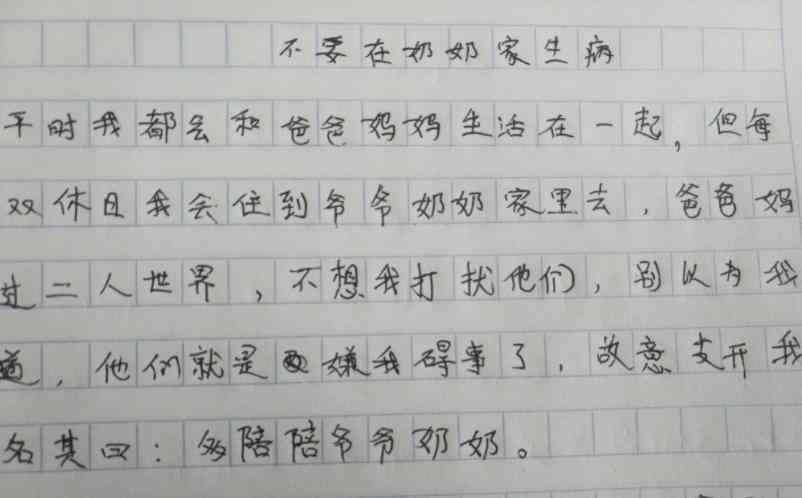 不要在奶奶家生病
平时我都会和爸爸妈妈生活在一起,但每
双休日我会住到爷爷奶奶家里去,爸爸妈
过二人世界,不想我打扰他们,别以为我
道,他们就是嫌我碍事了,故意支开我
名其曰:多陪陪爷爷奶奶。